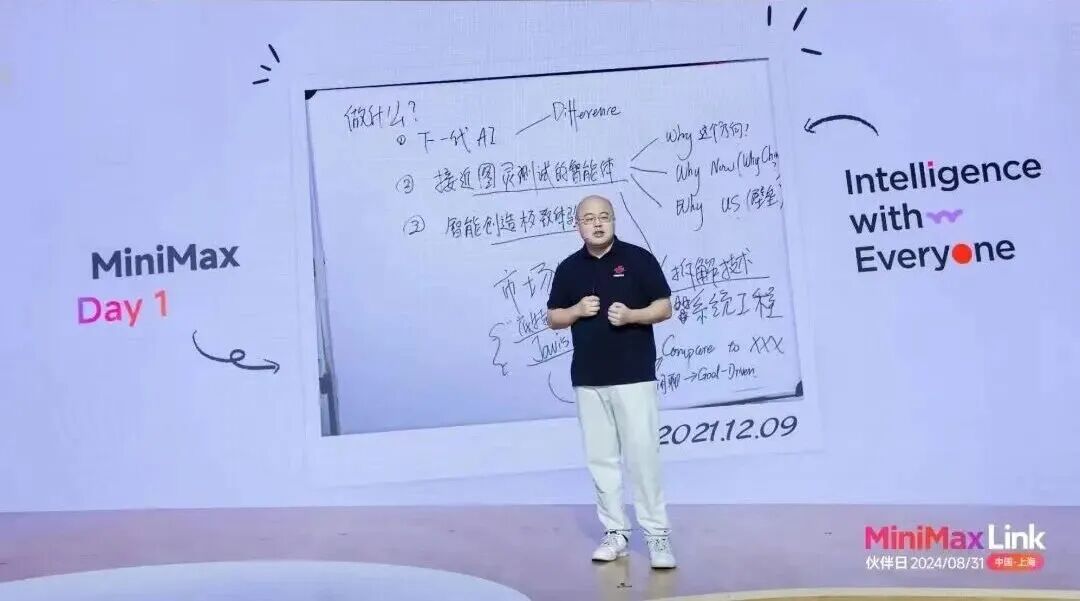 MiniMax
Day 1
做什么?
① 下一代 AI
Difference
② 接近图灵测试的智能体
Why 这个方向?
Why Now (Why
Why US (壁垒)
③ 智能创造极致体验
市场
拆解技术
系统工程
Javis
Compare to XXX
闲聊 → Goal-Driven
2021.12.09
Intelligence
with
Everyone
MiniMax Link
伙伴日 2024/08/31 中国·上海